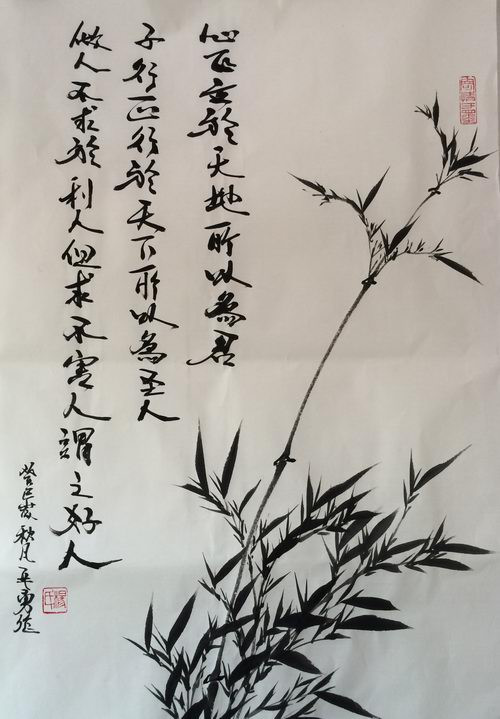 心正立於天地所以為君
子行正行於天下所以為圣人
做人不求於利人但求不害人謂之好人
癸巳歲秋月勇作